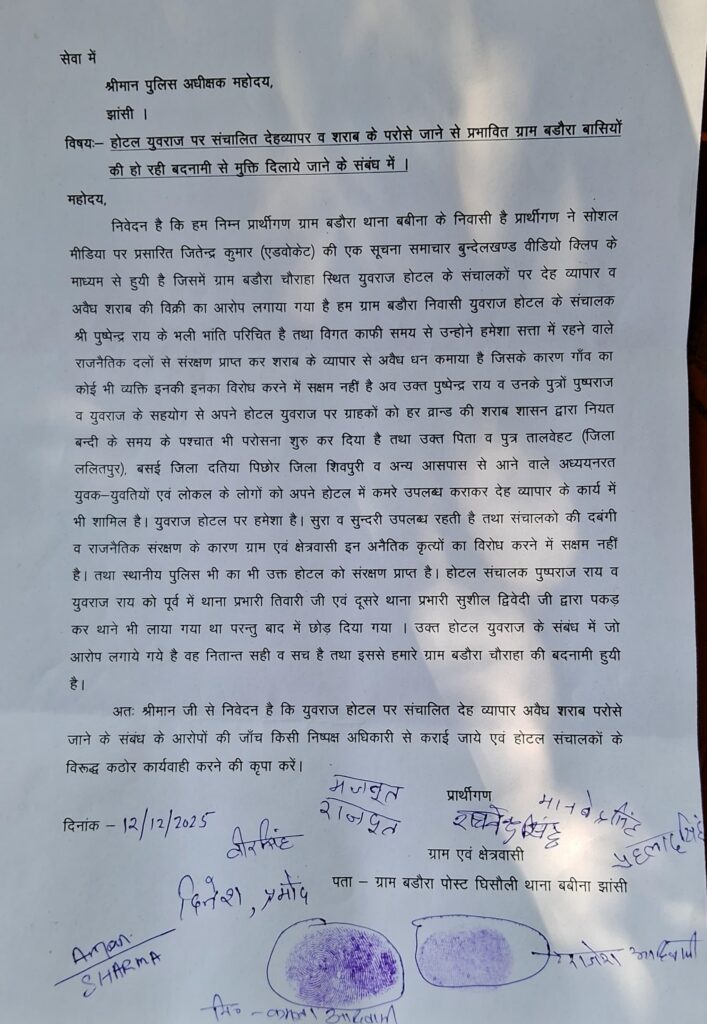 सेवा में
श्रीमान पुलिस अधीक्षक महोदय,
झांसी ।
विषयः– होटल युवराज पर संचालित देहव्यापर व शराब के परोसे जाने से प्रभावित ग्राम बडौरा बासियों
की हो रही बदनामी से मुक्ति दिलाये जाने के संबंध में ।
महोदय,
निवेदन है कि हम निम्न प्रार्थीगण ग्राम बडौरा थाना बबीना के निवासी है प्रार्थीगण ने सोशल
मीडिया पर प्रसारित जितेन्द्र कुमार (एडवोकेट) की एक सूचना समाचार बुन्देलखण्ड वीडियो क्लिप के
माध्यम से हुयी है जिसमें ग्राम बडौरा चौराहा स्थित युवराज होटल के संचालकों पर देह व्यापार व
अवैध शराब की विक्री का आरोप लगाया गया है हम ग्राम बडौरा निवासी युवराज होटल के संचालक
श्री पुष्पेन्द्र राय के भली भांति परिचित है तथा विगत काफी समय से उन्होने हमेशा सत्ता में रहने वाले
राजनैतिक दलों से संरक्षण प्राप्त कर शराब के व्यापार से अवैध धन कमाया है जिसके कारण गाँव का
कोई भी व्यक्ति इनकी इनका विरोध करने में सक्षम नहीं है अव उक्त पुष्पेन्द्र राय व उनके पुत्रों पुष्पराज
व युवराज के सहयोग से अपने होटल युवराज पर ग्राहकों को हर व्रान्ड की शराब शासन द्वारा नियत
बन्दी के समय के पश्चात भी परोसना शुरु कर दिया है तथा उक्त पिता व पुत्र तालवेहट (जिला
ललितपुर), बसई जिला दतिया पिछोर जिला शिवपुरी व अन्य आसपास से आने वाले अध्ययनरत
युवक–युवतियों एवं लोकल के लोगों को अपने होटल में कमरे उपलब्ध कराकर देह व्यापार के कार्य में
भी शामिल है। युवराज होटल पर हमेशा है। सुरा व सुन्दरी उपलब्ध रहती है तथा संचालको की दबंगी
व राजनैतिक संरक्षण के कारण ग्राम एवं क्षेत्रवासी इन अनैतिक कृत्यों का विरोध करने में सक्षम नहीं
है। तथा स्थानीय पुलिस भी का भी उक्त होटल को संरक्षण प्राप्त है। होटल संचालक पुष्पराज राय व
युवराज राय को पूर्व में थाना प्रभारी तिवारी जी एवं दूसरे थाना प्रभारी सुशील द्विवेदी जी द्वारा पकड़
कर थाने भी लाया गया था परन्तु बाद में छोड़ दिया गया । उक्त होटल युवराज के संबंध में जो
आरोप लगाये गये है वह नितान्त सही व सच है तथा इससे हमारे ग्राम बडौरा चौराहा की बदनामी हुयी
है।
अतः श्रीमान जी से निवेदन है कि युवराज होटल पर संचालित देह व्यापार अवैध शराब परोसे
जाने के संबंध के आरोपों की जाँच किसी निष्पक्ष अधिकारी से कराई जाये एवं होटल संचालकों के
विरूद्ध कठोर कार्यवाही करने की कृपा करें।
प्रार्थीगण
मजबूत
राजपूत
दिनांक – 12/12/2025
वीरसिंह
प्रहलाद सिंह
ग्राम एवं क्षेत्रवासी
दिनेश, प्रमोद
पता – ग्राम बडौरा पोस्ट घिसौली थाना बबीना झांसी
Aman
SHARMA
राजेश आदिवासी
आदिवासी